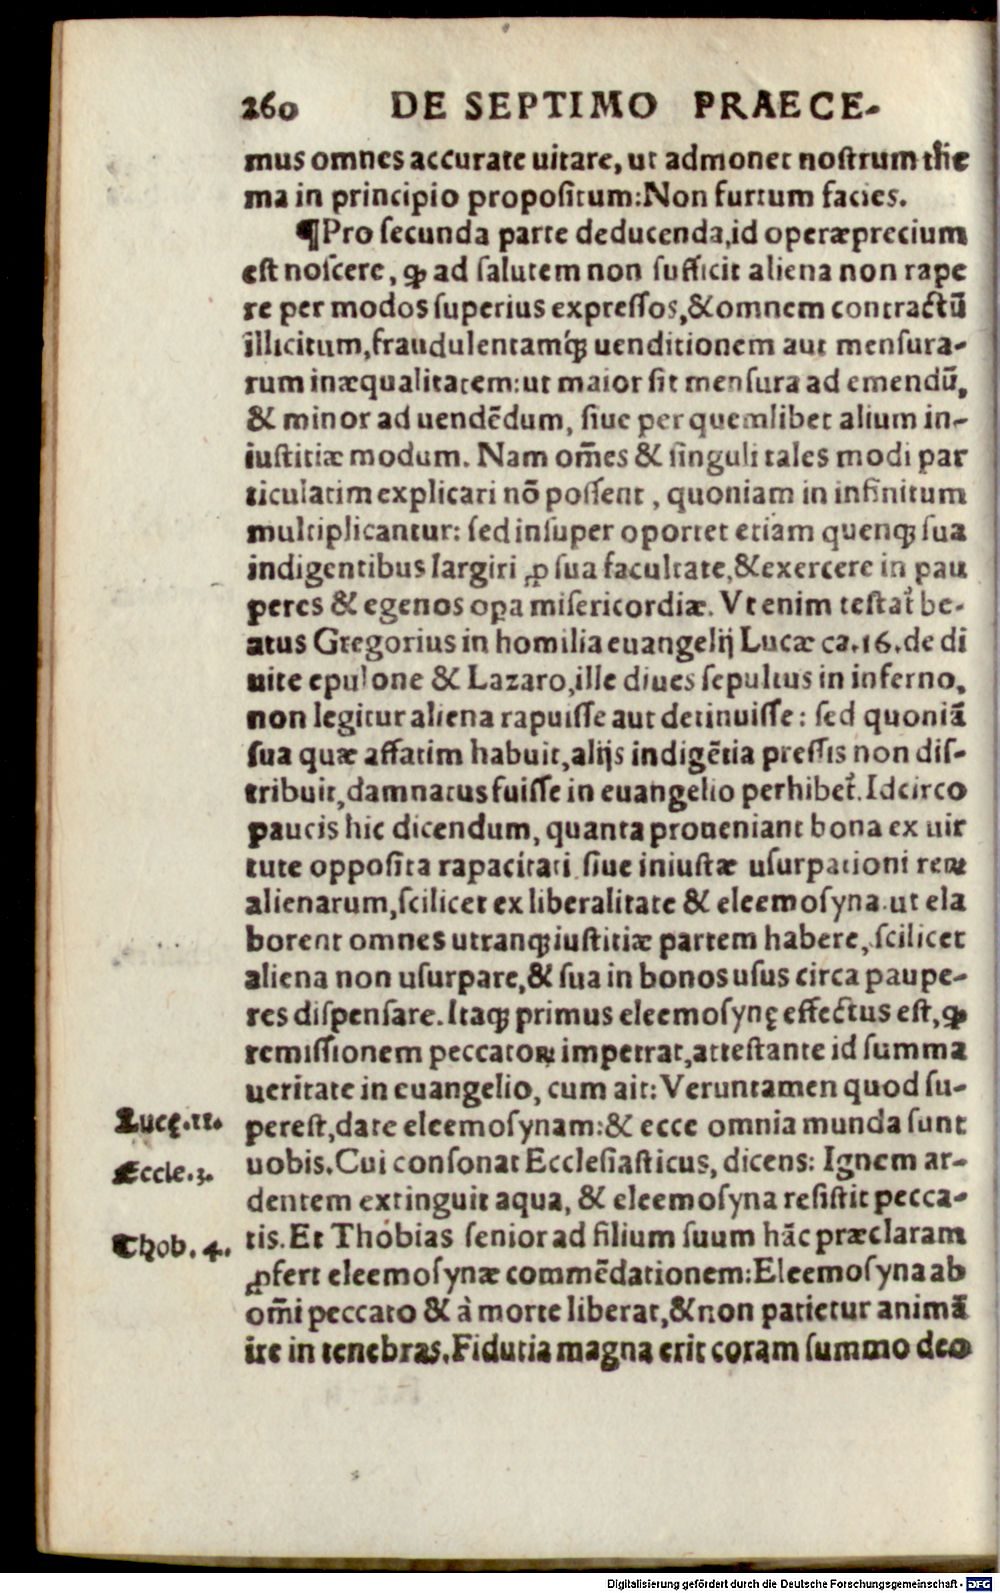 260 DE SEPTIMO PRAECE-
mus omnes accurate uitare, ut admonet nostrum the
ma in principio propositum:Non furtum facies.
¶Pro secunda parte deducenda,id operæprecium
est noscere, ꝙ ad salutem non sufficit aliena non rape
re per modos superius expressos,&omnem contractũ
illicitum,fraudulentamq́ꝫ uenditionem aut mensura-
rum inæqualitatem:ut maior sit mensura ad emendũ,
& minor ad uendẽdum, siue per quemlibet alium in-
iustitiæ modum. Nam om̃es & singuli tales modi par
ticulatim explicari nõ possent, quoniam in infinitum
multiplicantur: sed insuper oportet etiam quenqꝫ sua
indigentibus largiri ꝓ sua facultate,&exercere in pau
peres & egenos opa misericordiæ. Vt enim testat᷑ be-
atus Gregorius in homilia euangelij Lucæ ca.16.de di
uite epulone & Lazaro,ille diues sepultus in inferno,
non legitur aliena rapuisse aut detinuisse: sed quoniã
sua quæ affatim habuit,alijs indigẽtia pressis non dis-
tribuit,damnatus fuisse in euangelio perhibet᷑.Idcirco
paucis hic dicendum, quanta proueniant bona ex uir
tute opposita rapacitati siue iniustæ usurpationi reꝝ
alienarum,scilicet ex liberalitate & eleemosyna.ut ela
borent omnes utranqꝫ iustitiæ partem habere, scilicet
aliena non usurpare,& sua in bonos usus circa paupe-
res dispensare.Itaqꝫ primus eleemosynę effectus est,ꝙ
remissionem peccatoꝝ impetrat,attestante id summa
ueritate in euangelio, cum ait: Veruntamen quod su-
Lucę.11. perest,date eleemosynam:& ecce omnia munda sunt
Eccle.3. uobis.Cui consonat Ecclesiasticus, dicens: Ignem ar-
dentem extinguit aqua, & eleemosyna resistit pecca-
Thob. 4. tis.Et Thobias senior ad filium suum hãc præclaram
ꝓfert eleemosynæ commẽdationem:Eleemosyna ab
om̃i peccato & à morte liberat,&non patietur animã
ire in tenebras.Fidutia magna erit coram summo deo
Digitalisierung gefördert durch die Deutsche Forschungsgemeinschaft - DFG